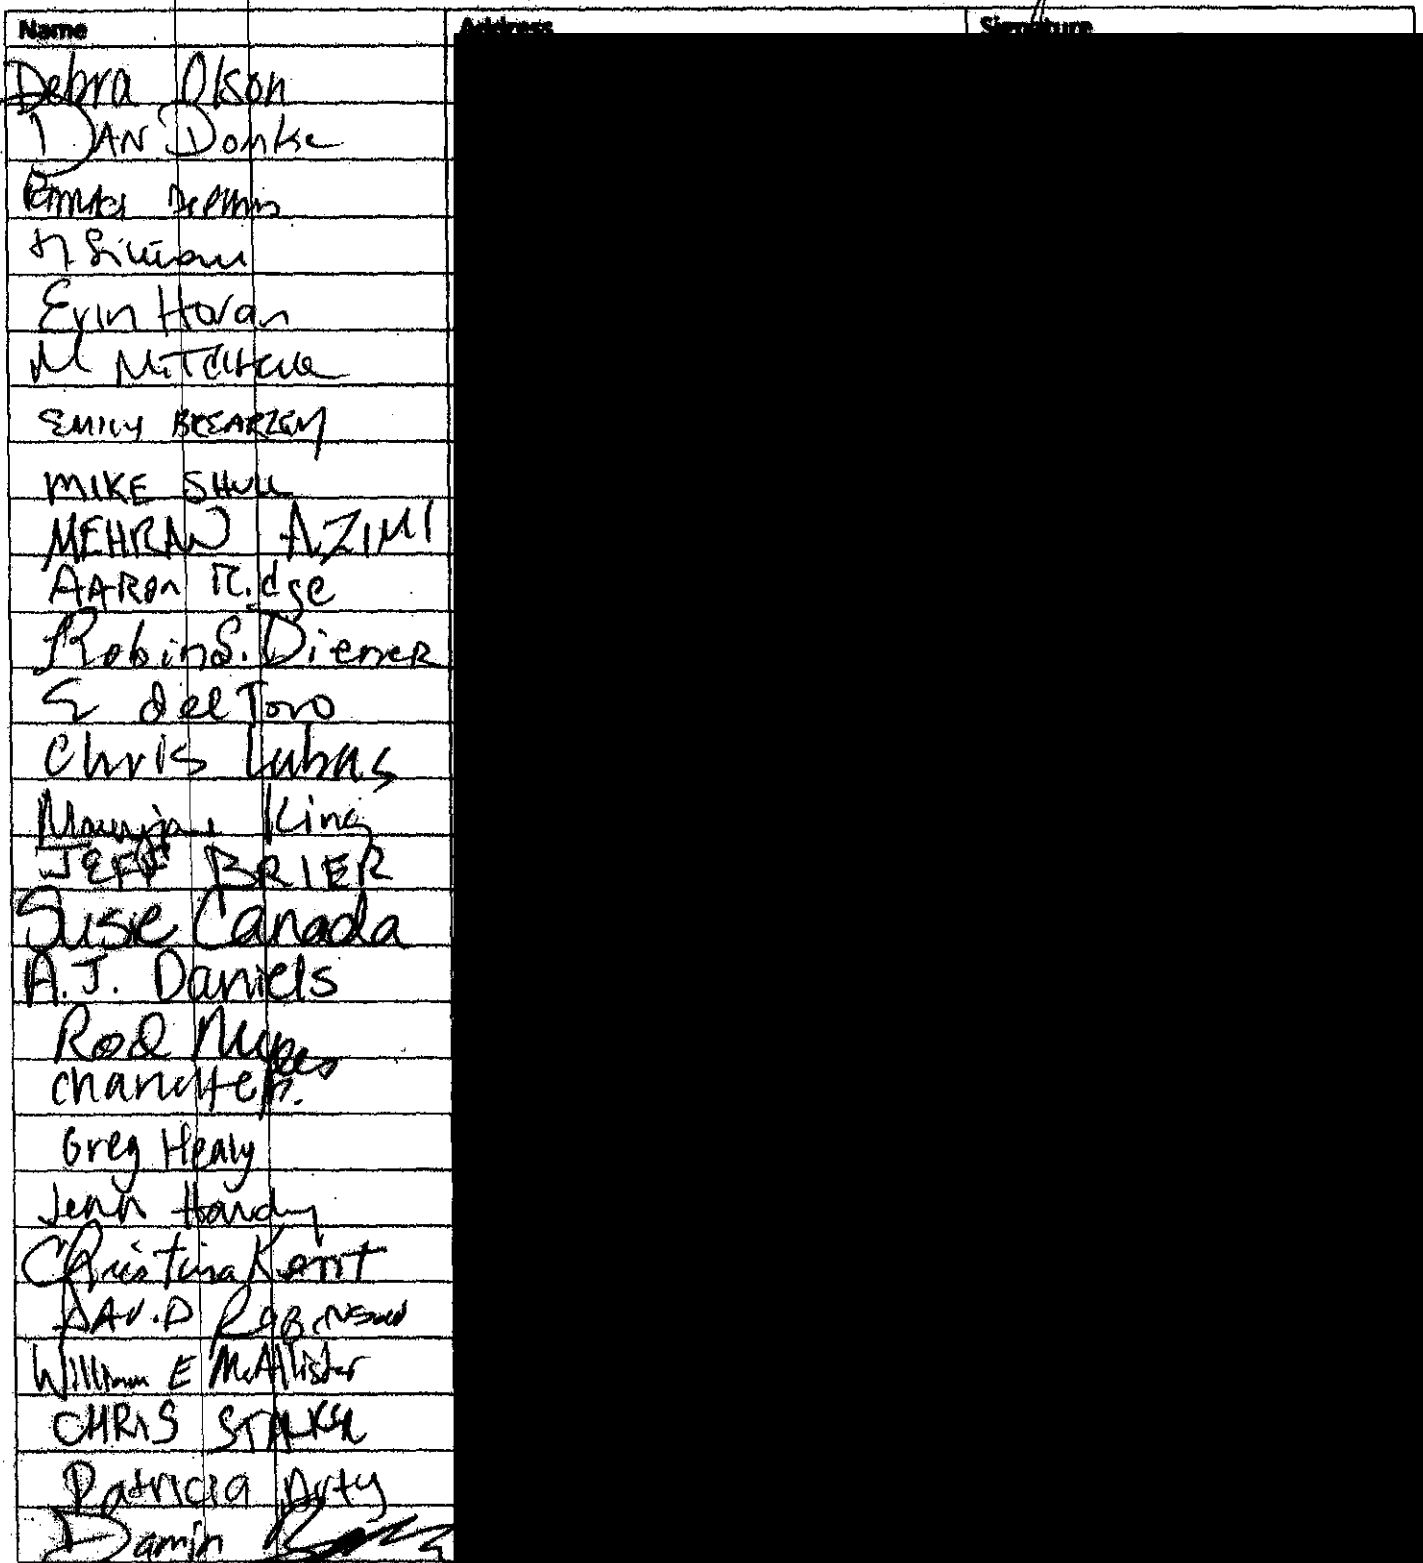 Name Address Signature
Debra Olson
DAN Domke
H Siman
Erin Horan
M MITCHELL
EMILY BREARLEY
MIKE SHULL
MEHRAN AZIMI
AARON Ridge
Robin S. Diener
E del Toro
Chris Lubas
King
JEFF BRIER
Susie Canada
A.J. Daniels
Rod
Chandler
Greg Healy
Jenn Hardy
Christina Kent
DAVID ROBINSON
William E McAllister
CHRIS STALKER
Patricia Arty
Damin